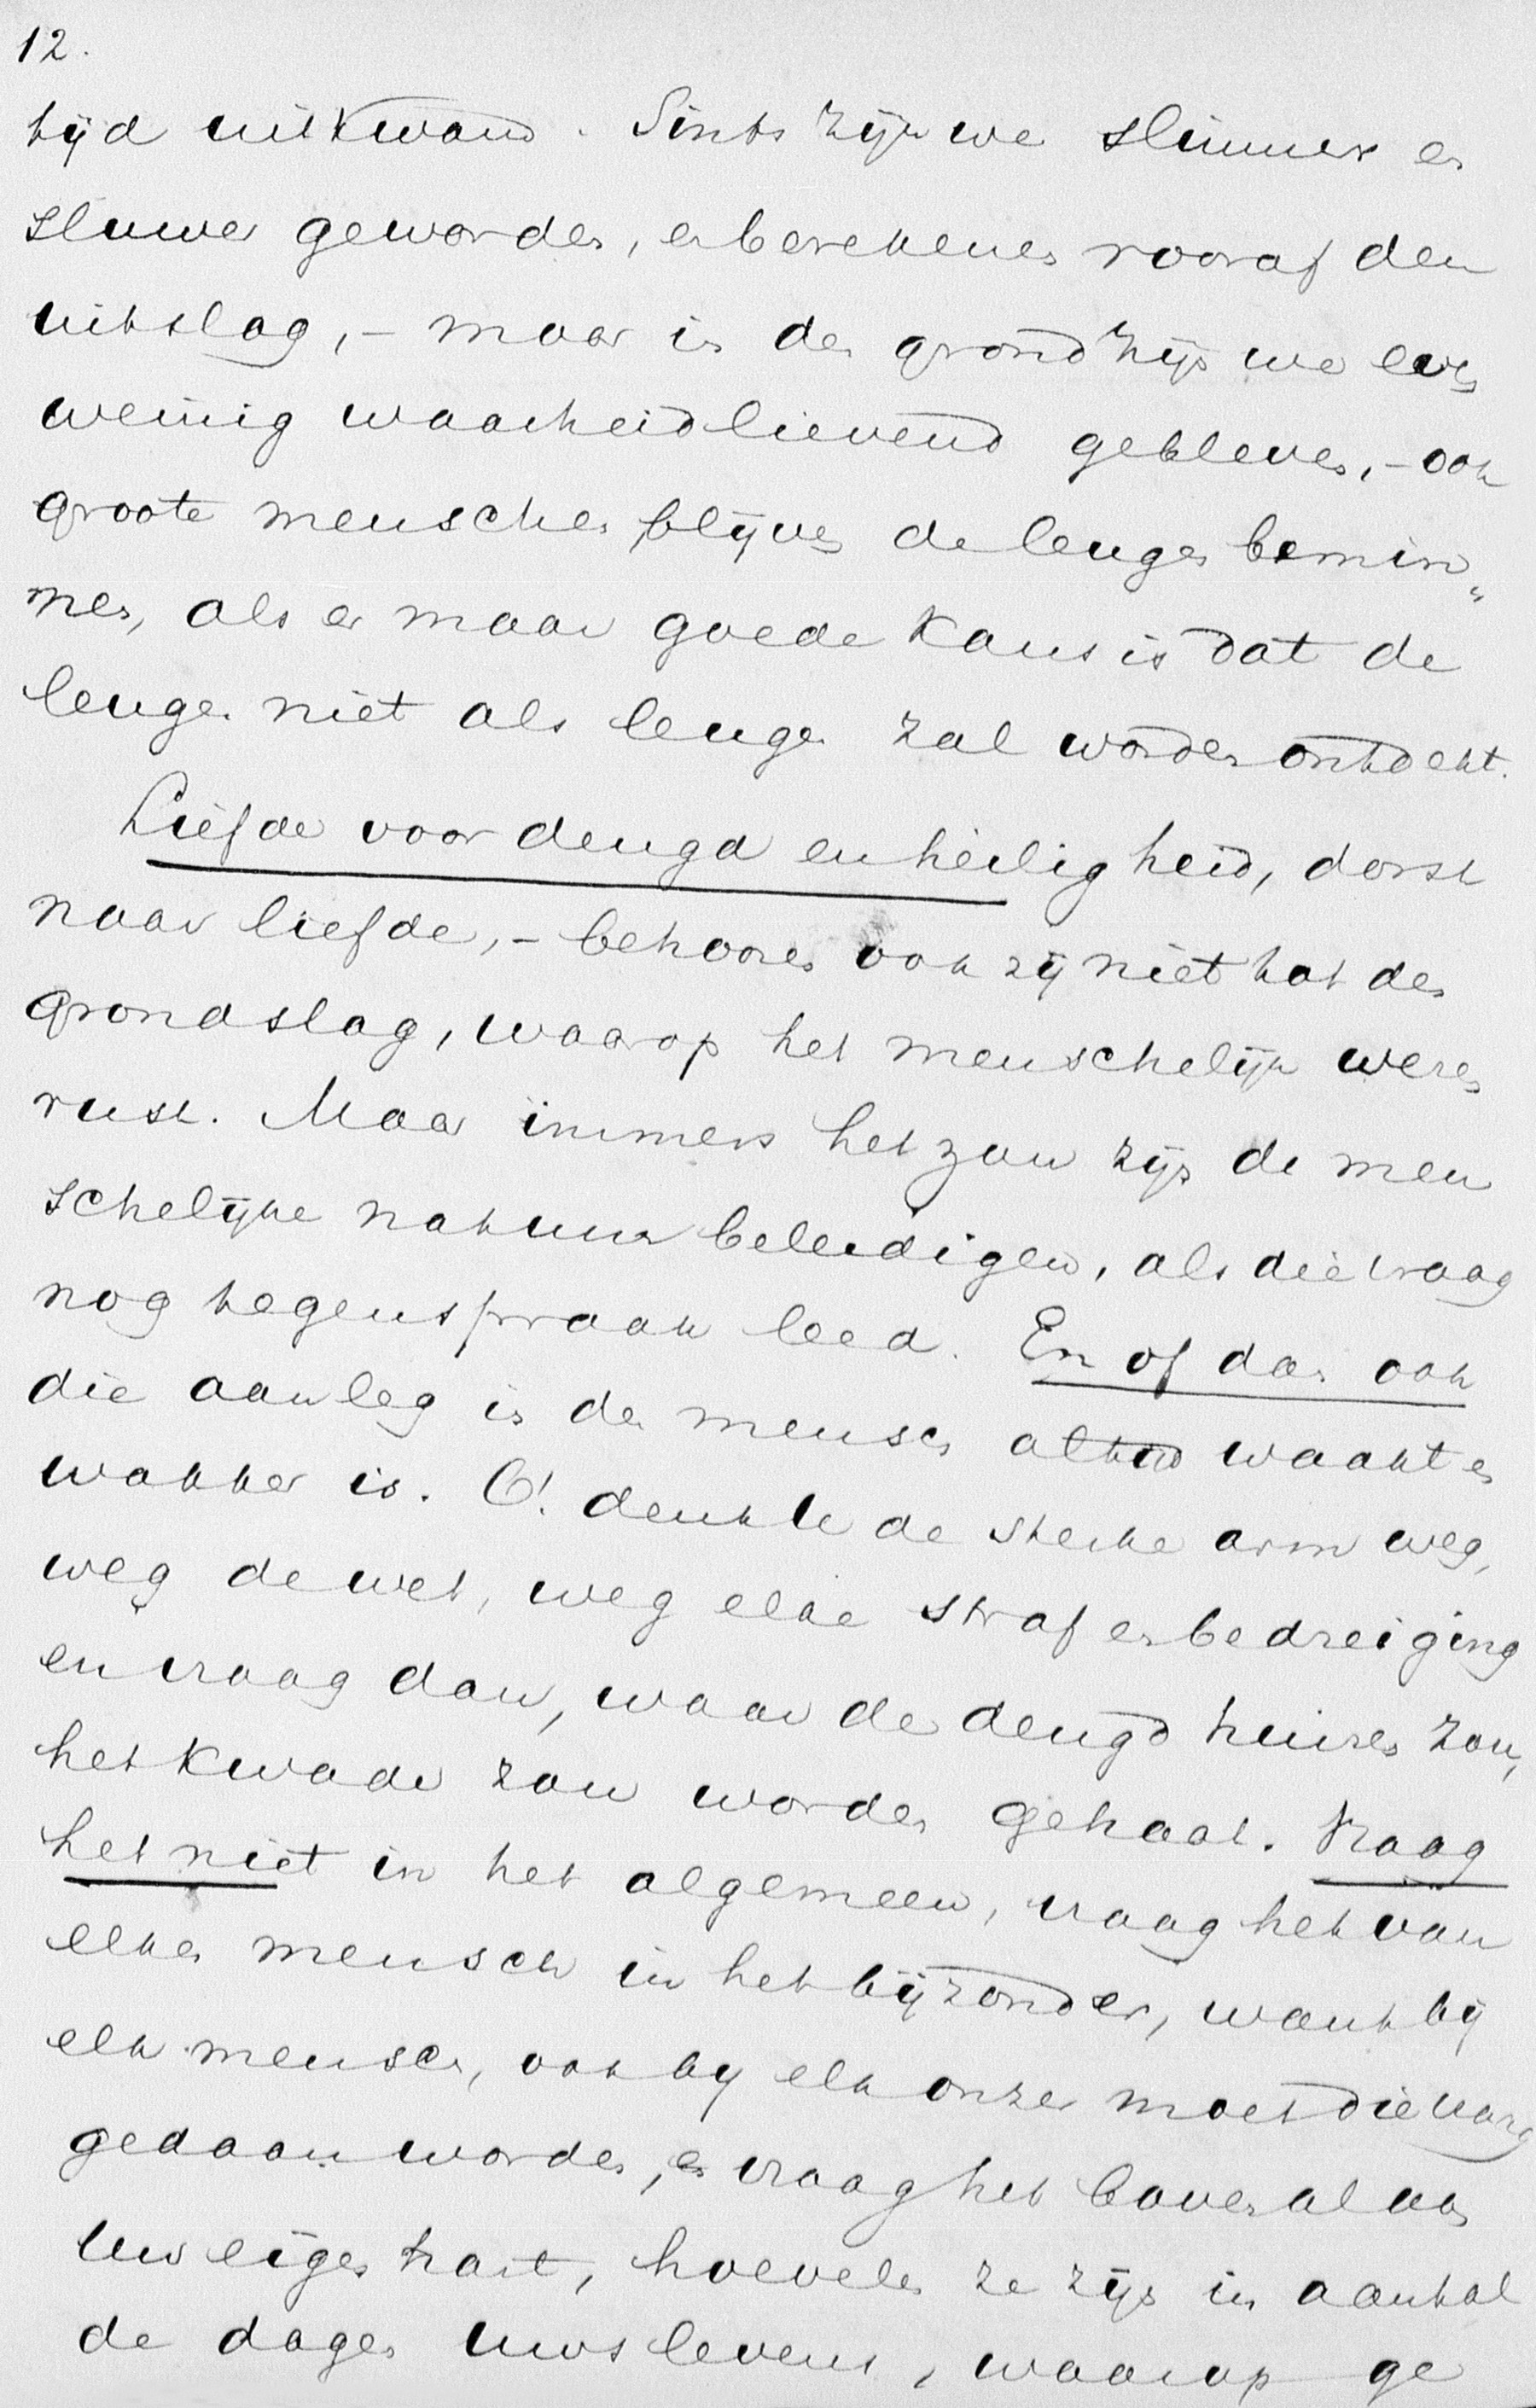 12.
tijd uitkwam. Sints zijn we slimmer en
sluwer geworden, en berekenen vooraf den
uitslag, – maar in den grond zijn we even
weinig waarheidlievend gebleven, – ook
groote menschen blijven de leugen bemin„
nen, als er maar goede kans is dat de
leugen niet als leugen zal worden ontdekt.
Liefde voor deugd en heiligheid, dorst
naar liefde, – behooren ook zij niet tot den
grondslag, waarop het menschelijk wezen
rust. Maar immers het zou zijn de men
schelijke natuur beleedigen, als die vraag
nog tegenspraak leed. En of dan ook
die aanleg in den mensch altijd waakt en
wakker is. O! denkt U de sterke arm weg,
weg de wet, weg elke straf en bedreiging
en vraag dan, waar de deugd huizen zou,
het kwade zou worden gehaat. Vraag
het niet in het algemeen, vraag het van
elken mensch in het bijzonder, want bij
elk mensch, ook bij elk onzer moet die vraag
gedaan worden, en vraag het bovenal aan
Uw eigen hart, hoevelen ze zijn in aantal
de dagen Uws levens, waarop ge